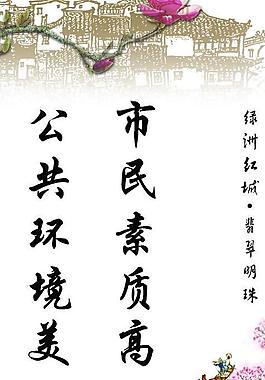 绿洲红城·翡翠明珠
市民素质高
公共环境美